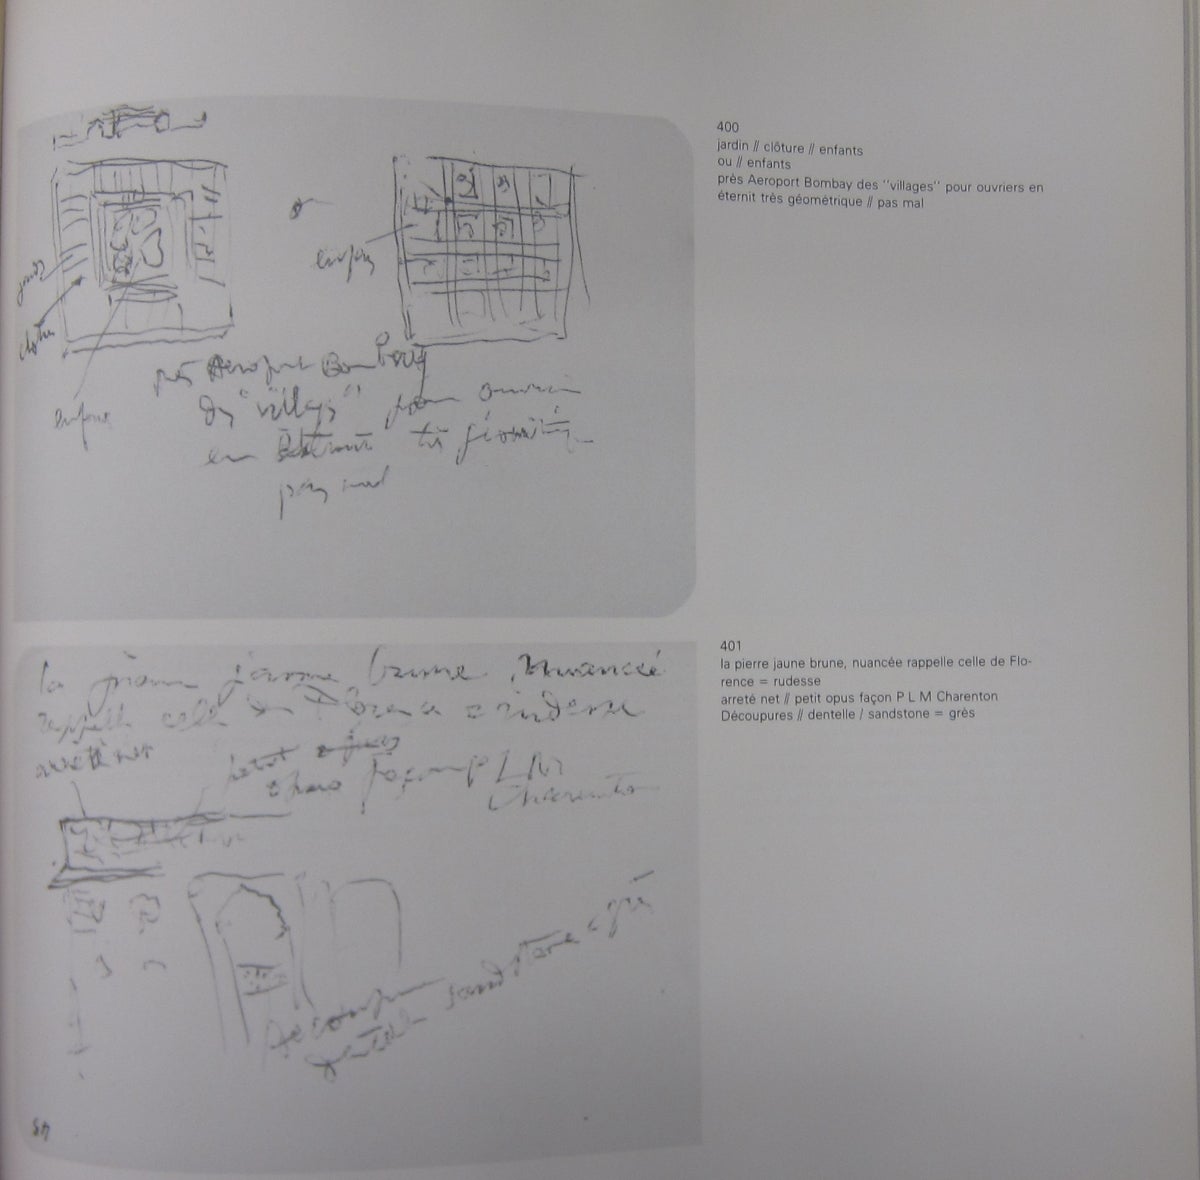 jardin
clôture
enfants
enfants
près Aeroport Bombay
des "villages" pour ouvriers
en Eternit très géométrique
pas mal
400
jardin // clôture // enfants
ou // enfants
près Aeroport Bombay des "villages" pour ouvriers en
éternit très géométrique // pas mal
la pierre jaune brune, nuancée
rappelle celle de Florence = rudesse
arrêté net
petit opus
opus façon P L M
Charenton
Découpures
dentelle sandstone = grès
401
la pierre jaune brune, nuancée rappelle celle de Flo-
rence = rudesse
arreté net // petit opus façon P L M Charenton
Découpures // dentelle / sandstone = grès